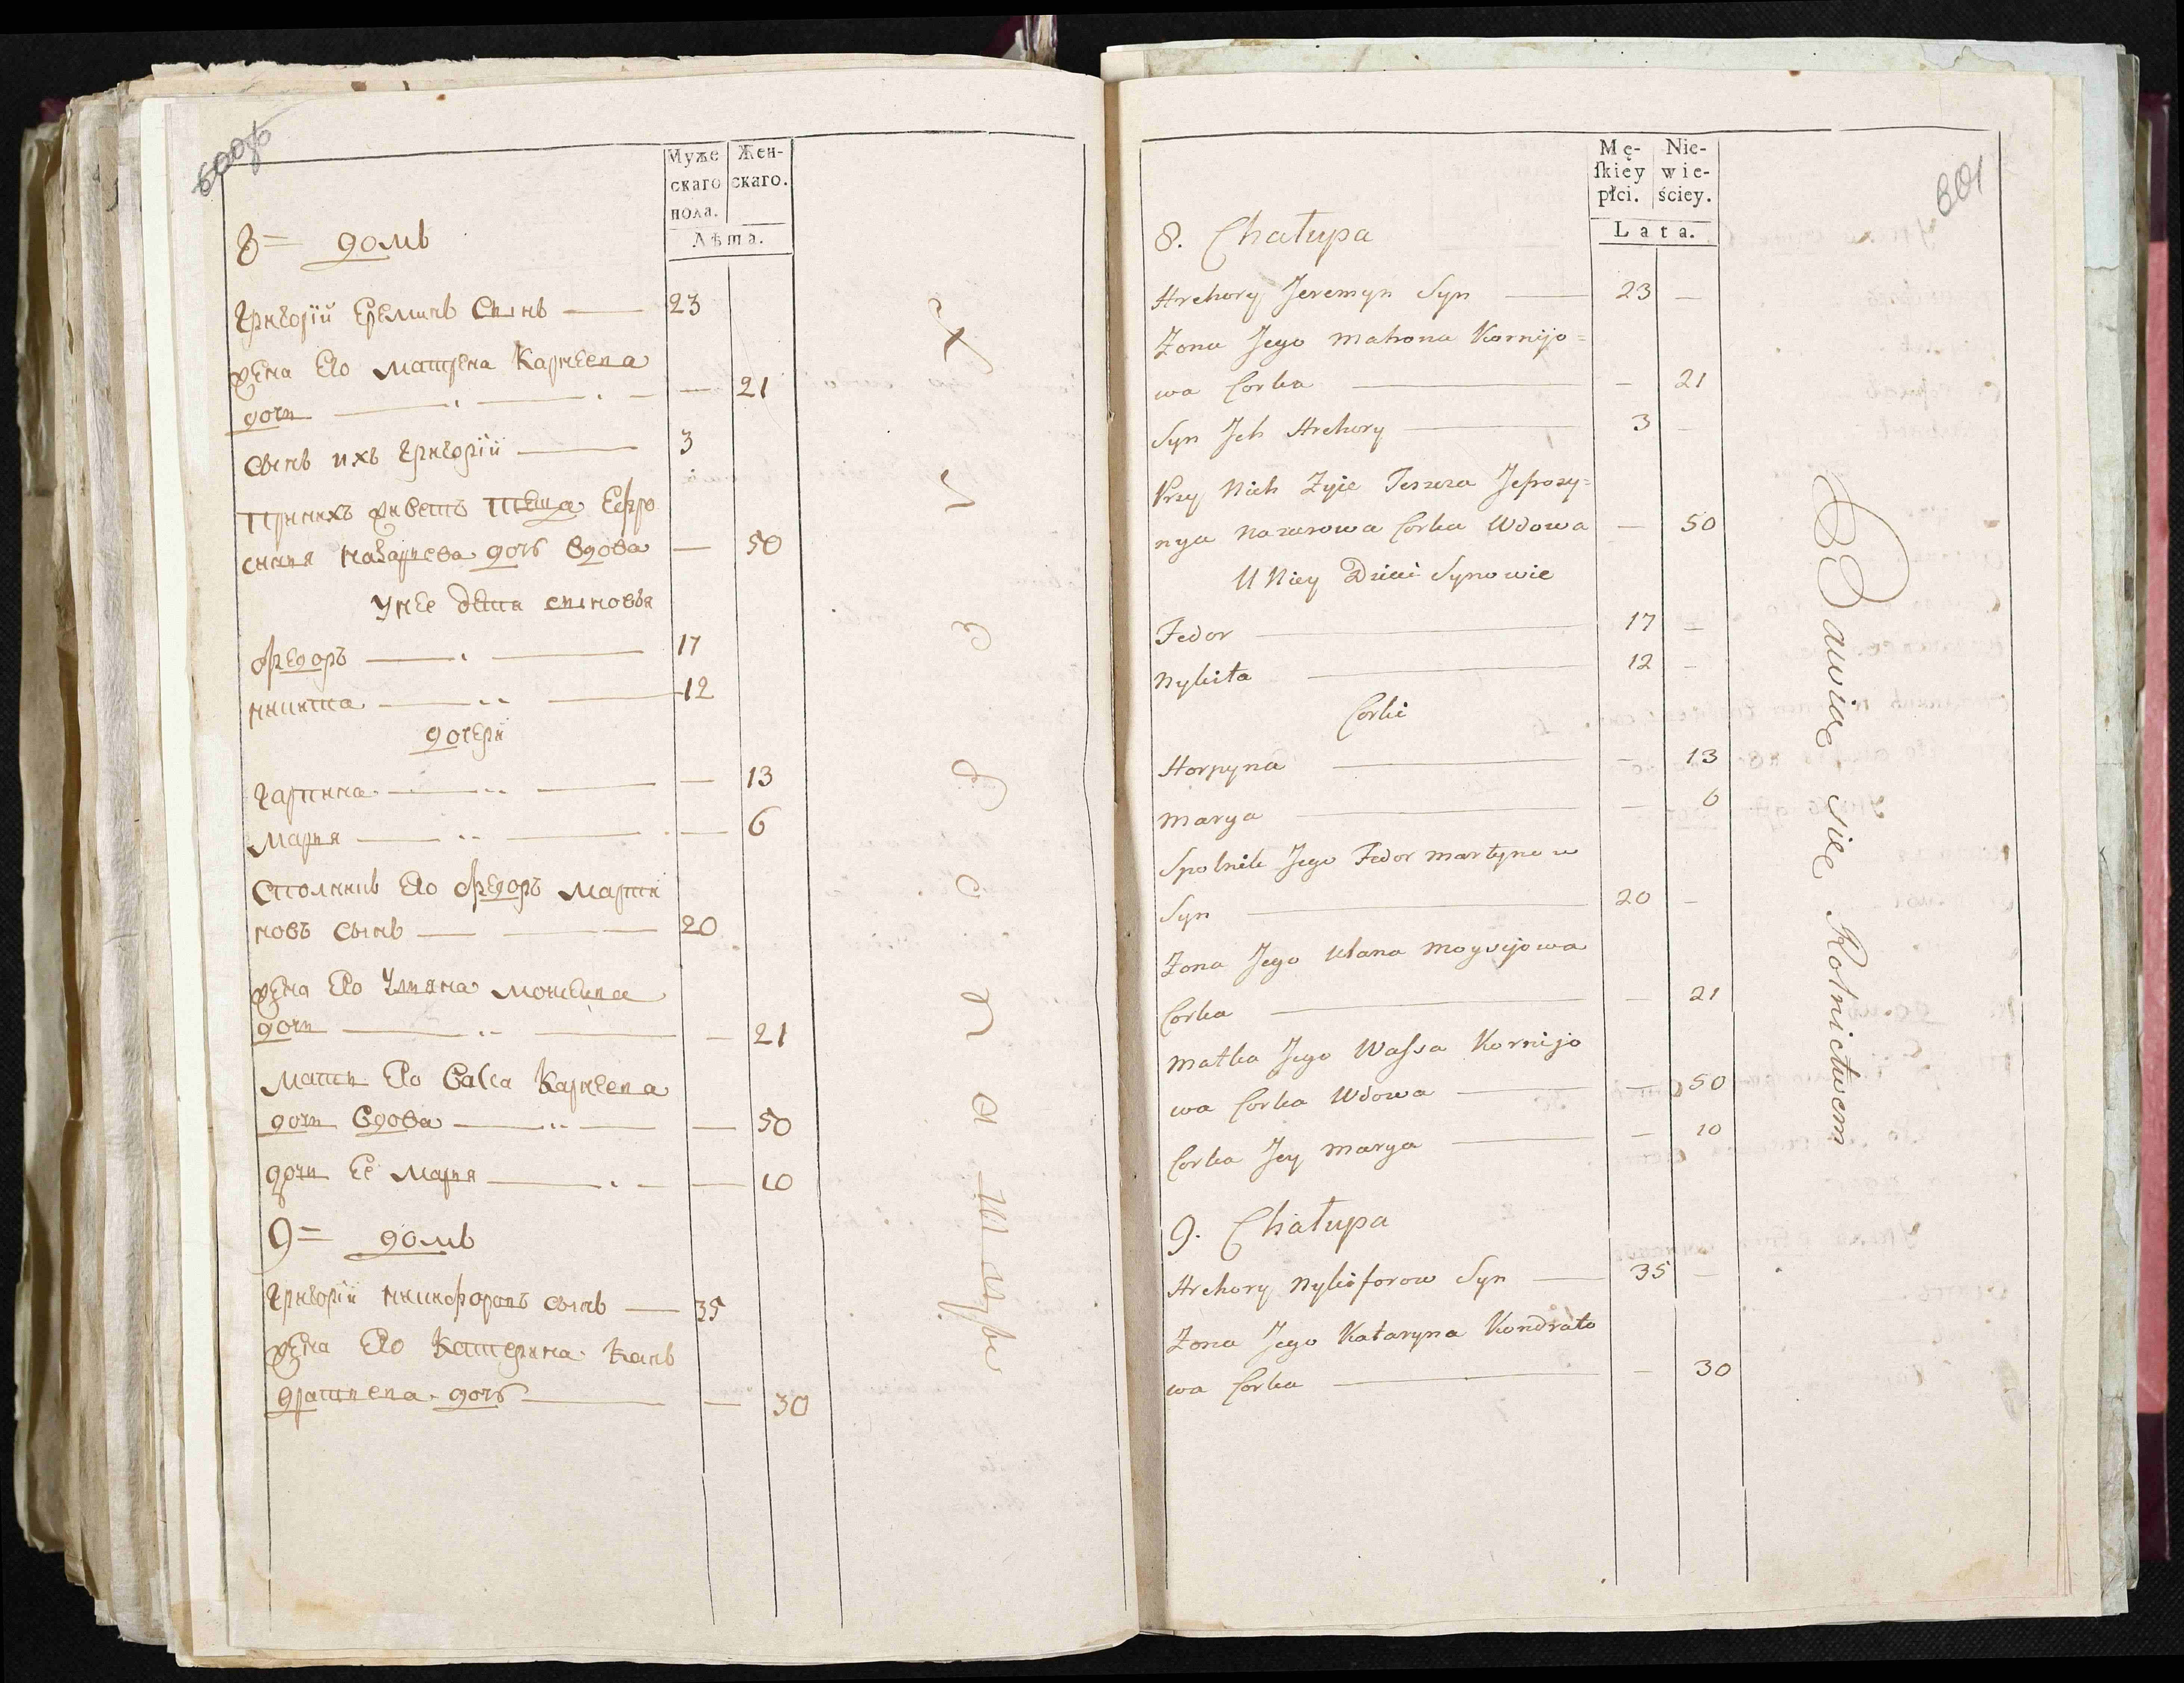 600об
Муже Жен-
скаго скаго.
пола.
Лѣта.
8= домъ
Григорїй Еремивъ Сынъ — 23
жена Его Матрена Карнеева
дочи — — 21
Сынъ ихъ Григорїй — 3
При нихъ живетъ теща Ефро
сания Назариева дочь Вдова — 50
У нее дети сыновья
Федоръ — 17
Никита — 12
дочери
Гарпина — — 13
Мария — — 6
Сполникъ Его Федоръ Марти
новъ Сынъ — 20
жена Его Уляна Моисеива
дочи — — 21
Мати Его Васса Карнеева
дочи Вдова — — 50
дочи Ее Мария — — 10
9= домъ
Григорїй Никифоровъ сынъ — 35
жена Его Катерина Кань
дратиева дочь — — 30
Хлебопашцы
601
Mę- Nie-
ſkiey wie-
płci. ściey.
Lata.
8. Chałupa
Hrehory Jeremyn Syn — 23 —
Zona Jego Matrona Kornijo=
wa Corka — — 21
Syn Jch Hrehory — 3 —
Przy Nich Zyie Teszcza Jefrozy=
nya Nazarowa Corka Wdowa — 50
U Niey Dzieci Synowie
Fedor — 17 —
Nykita — 12 —
Corki
Horpyna — — 13
Marya — — 6
Spolnik Jego Fedor Martynow
Syn — 20 —
Zona Jego Ulana Moysyjowa
Corka — — 21
Matka Jego Waſsa Kornijo
wa Corka Wdowa — — 50
Corka Jey Marya — — 10
9. Chałupa
Hrehory Nykiforow Syn — 35 —
Zona Jego Kataryna Kondrato
wa Corka — — 30
Bawią się Rolnictwem